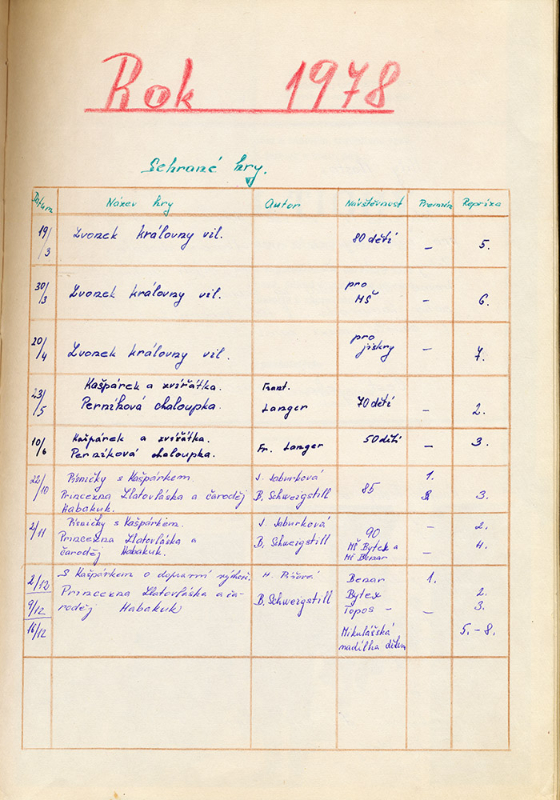 Rok 1978
Sehrané hry.
Datum Název hry Autor Návštěvnost Premiéra Repríza
19/3 Zvonek královny vil. 80 dětí – 5.
30/3 Zvonek královny vil. pro MŠ – 6.
20/4 Zvonek královny vil. pro jiskry – 7.
23/5 Kašpárek a zvířátka. Frant.
Perníková chaloupka. Langer 70 dětí – 2.
10/6 Kašpárek a zvířátka. Fr. Langer 50 dětí – 3.
Perníková chaloupka.
22/10 Písničky s Kašpárkem J. Saburková 1.
Princezna Zlatovláska a čaroděj B. Schweigstill 85 3.
Habakuk.
2/11 Písničky s Kašpárkem. J. Saburková 90 – 2.
Princezna Zlatovláska a B. Schweigstill MŠ Bytex a 4.
čaroděj Habakuk. MŠ Benar –
2/12 S Kašpárkem o dopravní H. Benar 1.
Princezna Zlatovláska a ča- B. Schweigstill Bytex 2.
9/12 roděj Habakuk Topos – – 3.
16/12 Mikulášská 5.–8.
nadílka dětem